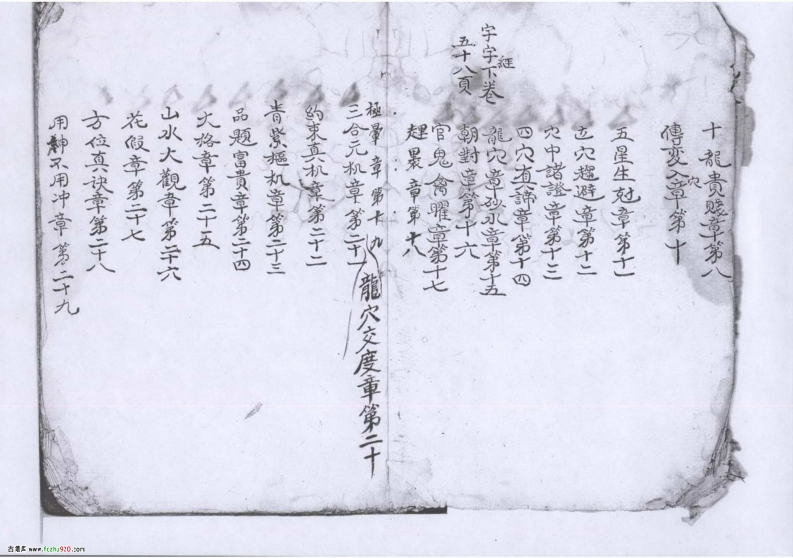 十龍貴賤章第八
傳變入穴章第十
五星生尅章第十一
立穴趨避章第十二
穴中諸證章第十三
四穴真諦章第十四
龍穴章砂水章第十五
朝對章第十六
官鬼禽曜章第十七
章第十八
字字經下卷
五十八頁
極暈章第十九
龍穴交度章第二十
三合元机章第二十一
約束真机章第二十二
青紫樞机章第二十三
品題富貴章第二十四
大格章第二十五
山水大觀章第二十六
花假章第二十七
方位真訣章第二十八
用神不用冲章第二十九
www.fczhu920.com